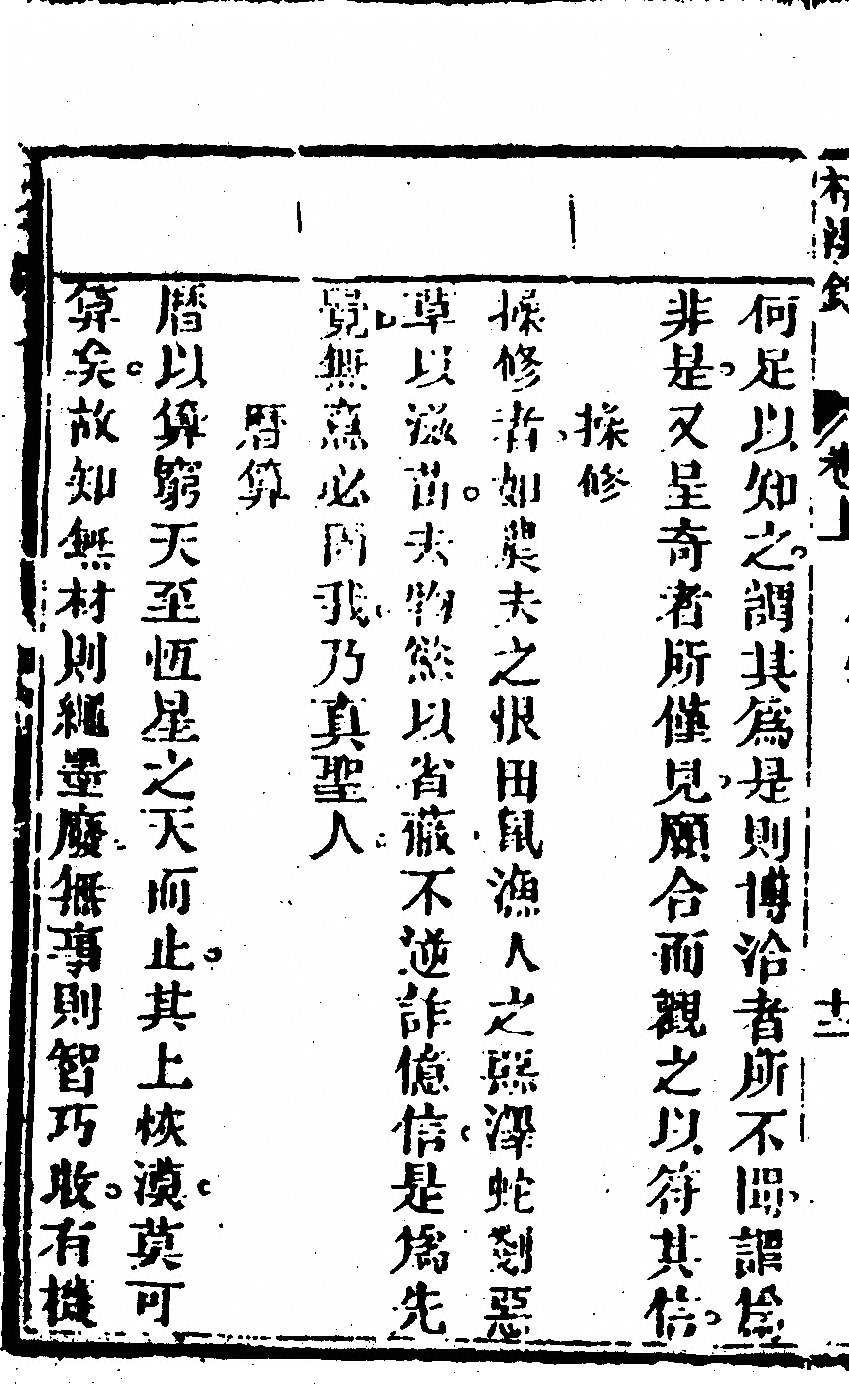 卷上
十二
何足以知之謂其爲是則博洽者所不聞謂爲
非是又呈奇者所僅見願合而觀之以符其信
操修
操修者如農夫之恨田鼠漁人之惡澤蛇剗惡
草以滋苗去物慾以省薇不逆詐億信是爲先
覺無意必固我乃真聖人
曆算
曆以算窮天至恆星之天而止其上恢漠莫可
算矣故知無材則繩墨廢無事則智巧收有機